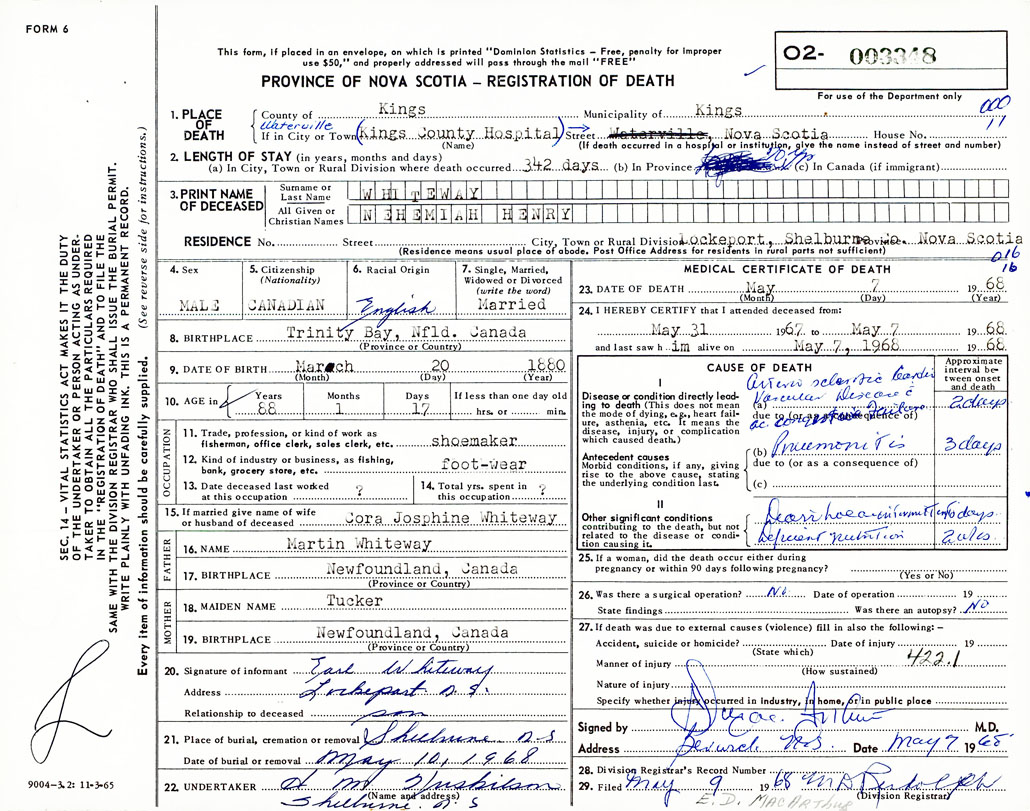 FORM 6
This form, if placed in an envelope, on which is printed "Dominion Statistics – Free, penalty for improper
use $50," and properly addressed will pass through the mail "FREE"
PROVINCE OF NOVA SCOTIA – REGISTRATION OF DEATH
O2- 003348
For use of the Department only
SEC. 14 – VITAL STATISTICS ACT MAKES IT THE DUTY
OF THE UNDERTAKER OR PERSON ACTING AS UNDER-
TAKER TO OBTAIN ALL THE PARTICULARS REQUIRED
IN THE "REGISTRATION OF DEATH" AND TO FILE THE
SAME WITH THE DIVISION REGISTRAR WHO SHALL ISSUE BURIAL PERMIT.
WRITE PLAINLY WITH UNFADING INK. THIS IS A PERMANENT RECORD.
Every item of information should be carefully supplied. (See reverse side for instructions.)
1. PLACE OF DEATH
County of Kings Municipality of Kings 000
Waterville 11
If in City or Town (Kings County Hospital) Street Waterville, Nova Scotia House No.
(Name) (If death occurred in a hospital or institution, give the name instead of street and number)
2. LENGTH OF STAY (in years, months and days)
(a) In City, Town or Rural Division where death occurred 342 days (b) In Province (c) In Canada (if immigrant)
3. PRINT NAME OF DECEASED
Surname or Last Name WHITEWAY
All Given or Christian Names NEHEMIAH HENRY
RESIDENCE No. Street City, Town or Rural Division Lockeport, Shelburne Co. Province Nova Scotia
(Residence means usual place of abode. Post Office Address for residents in rural parts not sufficient)
016
16
4. Sex MALE
5. Citizenship (Nationality) CANADIAN
6. Racial Origin English
7. Single, Married, Widowed or Divorced (write the word) Married
8. BIRTHPLACE Trinity Bay, Nfld. Canada
(Province or Country)
9. DATE OF BIRTH March 20 1880
(Month) (Day) (Year)
10. AGE in Years 88 Months 1 Days 17 If less than one day old hrs. or min.
OCCUPATION
11. Trade, profession, or kind of work as fisherman, office clerk, sales clerk, etc. shoemaker
12. Kind of industry or business, as fishing, bank, grocery store, etc. foot-wear
13. Date deceased last worked at this occupation ?
14. Total yrs. spent in this occupation ?
15. If married give name of wife or husband of deceased Cora Josphine Whiteway
FATHER
16. NAME Martin Whiteway
17. BIRTHPLACE Newfoundland, Canada
(Province or Country)
MOTHER
18. MAIDEN NAME Tucker
19. BIRTHPLACE Newfoundland, Canada
(Province or Country)
20. Signature of informant Earl Whiteway
Address Lockeport N.S.
Relationship to deceased son
21. Place of burial, cremation or removal Shelburne N.S
Date of burial or removal May 10, 1968
22. UNDERTAKER
(Name and address)
Shelburne N.S
9004-3.2: 11-3-65
MEDICAL CERTIFICATE OF DEATH
23. DATE OF DEATH May 7 1968
(Month) (Day) (Year)
24. I HEREBY CERTIFY that I attended deceased from:
May 31 1967 to May 7 1968
and last saw h im alive on May 7, 1968 1968
CAUSE OF DEATH
Approximate interval between onset and death
I
Disease or condition directly leading to death (This does not mean the mode of dying, e.g., heart failure, asthenia, etc. It means the disease, injury, or complication which caused death.)
Arterio sclerotic Cardio
(a) Vascular Disease 2 days
due to (or as a consequence of)
ac. congestive failure
Antecedent causes
Morbid conditions, if any, giving rise to the above cause, stating the underlying condition last.
(b) Pneumonitis 3 days
due to (or as a consequence of)
(c)
II
Other significant conditions contributing to the death, but not related to the disease or condition causing it.
days
Deficient nutrition
25. If a woman, did the death occur either during pregnancy or within 90 days following pregnancy?
(Yes or No)
26. Was there a surgical operation? No Date of operation 19
State findings Was there an autopsy? No
27. If death was due to external causes (violence) fill in also the following:–
Accident, suicide or homicide? Date of injury 19
(State which) 422.1
Manner of injury
(How sustained)
Nature of injury
Specify whether injury occurred in Industry, in home, or in public place
Signed by M.D.
Address N.S. Date May 7 1968
28. Division Registrar's Record Number
29. Filed May 9 1968
(Division Registrar)
E. D. MacArthur